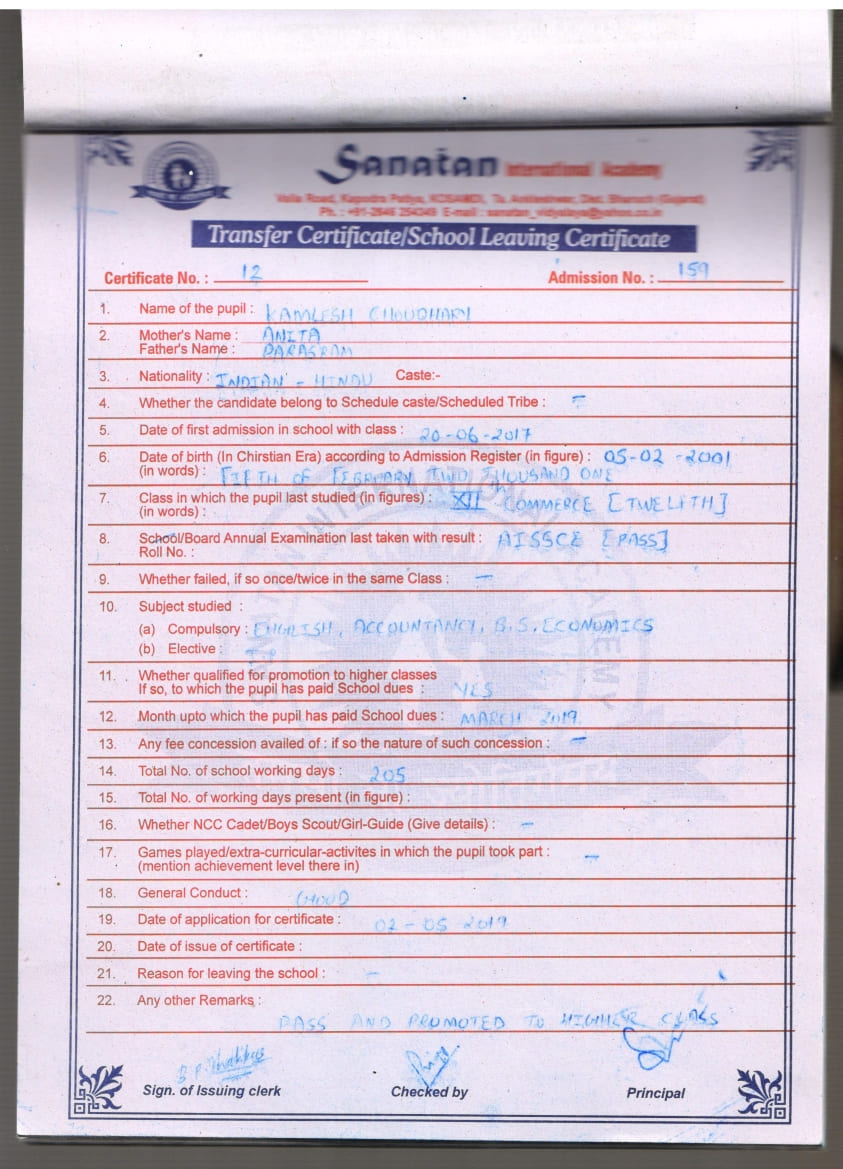 Sanatan International Academy
Valia Road, Kapodra Patiya, KOSAMDI, Ta. Ankleshwar, Dist. Bharuch (Gujarat)
Ph. : +91-2646 254349 E-mail : sanatan_vidyalaya@yahoo.co.in
Transfer Certificate/School Leaving Certificate
Certificate No. : 12 Admission No. : 159
1. Name of the pupil : KAMLESH CHOUDHARY
2. Mother's Name : ANITA
Father's Name : PARASRAM
3. Nationality : INDIAN - HINDU Caste:-
4. Whether the candidate belong to Schedule caste/Scheduled Tribe : -
5. Date of first admission in school with class : 20-06-2017
6. Date of birth (In Chirstian Era) according to Admission Register (in figure) : 05-02-2001
(in words) : FIFTH OF FEBRUARY TWO THOUSAND ONE
7. Class in which the pupil last studied (in figures) : XII COMMERCE [TWELFTH]
(in words) :
8. School/Board Annual Examination last taken with result : AISSCE [PASS]
Roll No. :
9. Whether failed, if so once/twice in the same Class : -
10. Subject studied :
(a) Compulsory : ENGLISH, ACCOUNTANCY, B.S, ECONOMICS
(b) Elective :
11. Whether qualified for promotion to higher classes
If so, to which the pupil has paid School dues : YES
12. Month upto which the pupil has paid School dues : MARCH 2019
13. Any fee concession availed of : if so the nature of such concession : -
14. Total No. of school working days : 205
15. Total No. of working days present (in figure) :
16. Whether NCC Cadet/Boys Scout/Girl-Guide (Give details) : -
17. Games played/extra-curricular-activites in which the pupil took part : -
(mention achievement level there in)
18. General Conduct : GOOD
19. Date of application for certificate : 02-05-2019
20. Date of issue of certificate :
21. Reason for leaving the school : -
22. Any other Remarks :
PASS AND PROMOTED TO HIGHER CLASS
Sign. of Issuing clerk Checked by Principal